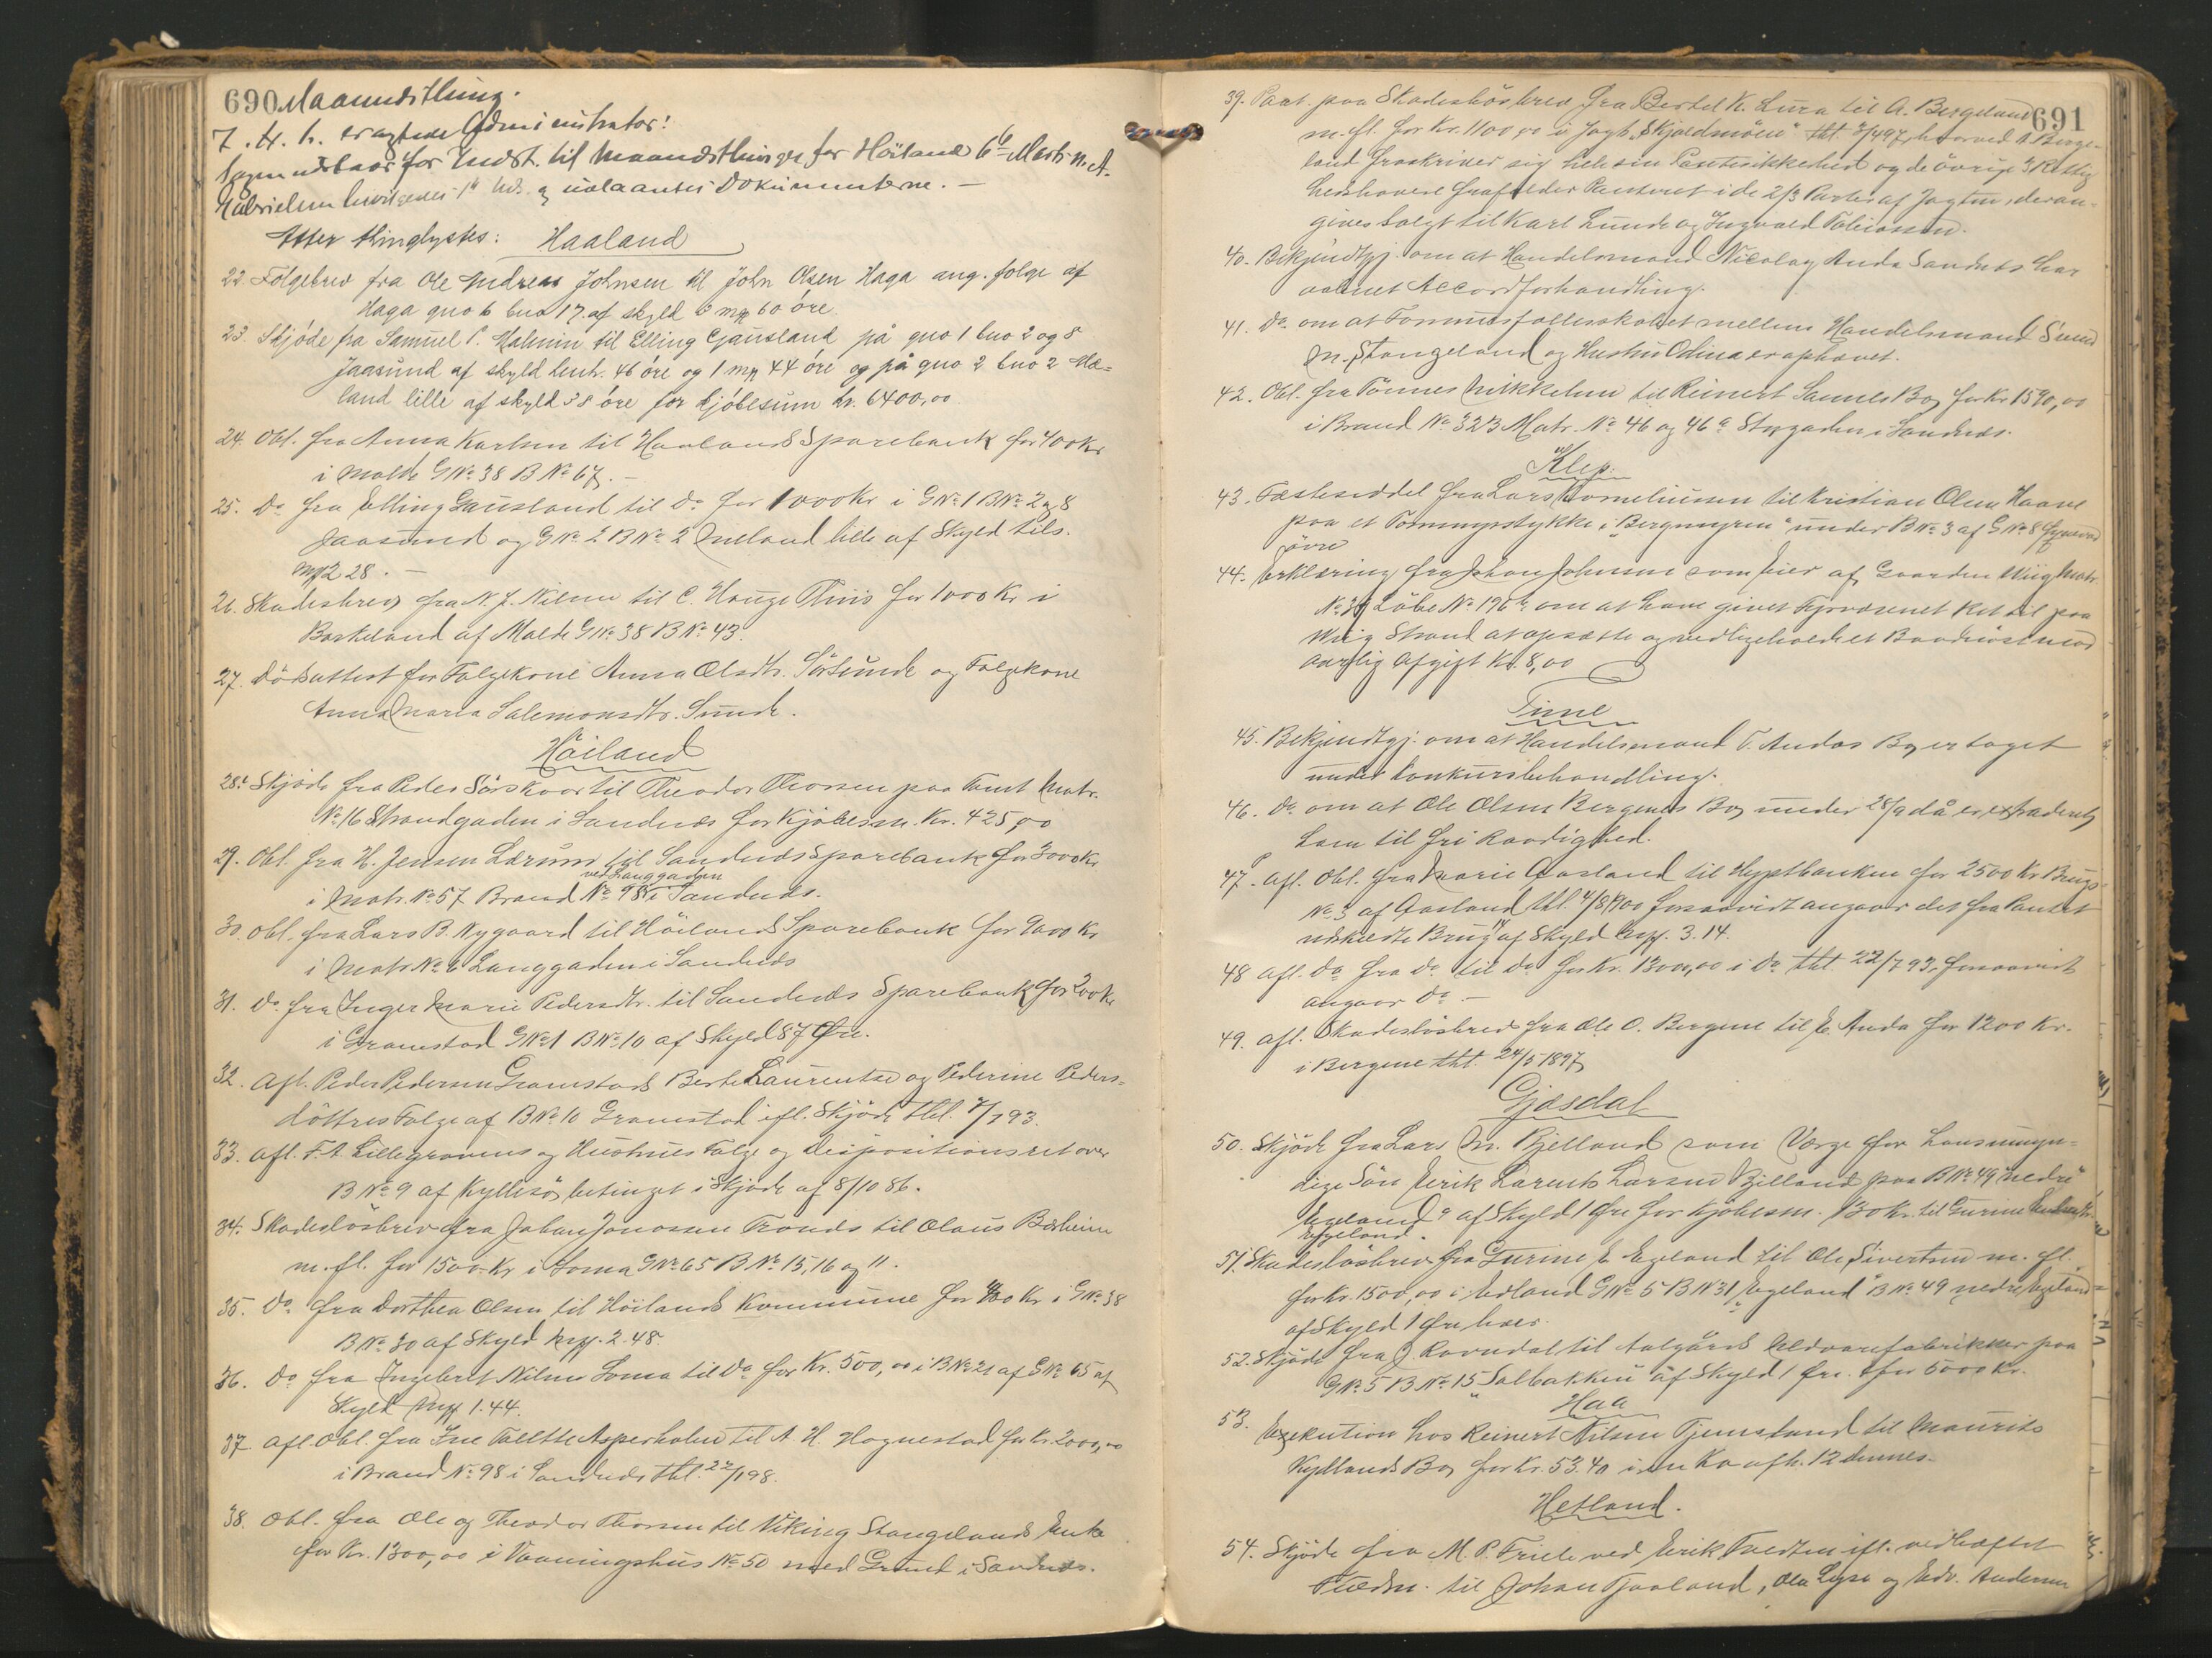 690 Maanedsthing.
7. H. h. Administrator:
for Indst. til Maanedsthinget for Höiland 6te M.A.
Gabrielsen 1ste og Dokumenterne. —
Atter thinglystes: Haaland
22. Fölgebrev fra Ole Andreas Johnsen til John Olsen Haga ang. folge af
Haga gno 6 bno 17. af skyld 6 mp 60 öre
23. Skjöde fra Samuel P. Malmin til Elling Gjausland på gno 1 bno 2 og 8
Jaasund af skyld henh. 46 öre og 1 mp 44 öre og på gno 2 bno 2 Mæ=
land lille af skyld 38 öre for kjöbesum kr. 6400,00
24. Obl. fra Anna Karlsen til Haalands Sparebank for 400 kr
i Malde GNo 38 BNo 67. —
25. Do fra Elling Gausland til do for 1000 Kr i GNo 1 BNo 2 og 8
Jaasund og GNo 2 BNo 2 Meland lille af Skyld tils.
Mp 2 28. —
26. Skadesbrev fra N. J. Nilsen til C. Hauge Thiis for 1000 Kr i
Barkeland af Malde GNo 38 BNo 43.
27. Dödsattest for Folgekone Anna Olsdtr. Sörsunde og Folgekone
Anna Maria Salemonsdtr. Sunde.
Höiland
28. Skjöde fra Peder Sörskaar til Theodor Thorsen paa Tomt Matr.
No 16 Strandgaden i Sandnæs for Kjöbesum. Kr. 425,00
29. Obl. fra H. Jensen Lærum til Sandnæs Sparebank for 3000 Kr
ved Langgaden
i Matr. No 57 Brand No 98 i Sandnæs.
30. Obl. fra Lars B. Nygaard til Höilands Sparebank for 9000 Kr
i Matr No 6 Langgaden i Sandnæs
31. Do fra Inger Marie Pedersdtr. til Sandnæs Sparebank for 200 kr
i Gramstad GNo 1 BNo 10 af Skyld 87 Öre.
32. Afl. Peder Pedersen Gramstads Berte Laurentse og Pederine Peders=
döttres Folge af BNo 10 Gramstad ifl. Skjöde thl. 7/7 93.
33. Afl. F. A. Lillegravens og Hustrues Folge og Dispositionsret over
BNo 9 af Kyllesö betinget i Skjöde af 8/10 86.
34. Skadeslösbrev fra Johan Jonassen Tronds til Olaus Bærheim
m. fl. for 1500 Kr i Soma GNo 65 BNo 15, 16 og 11.
35. Do fra Dorthea Olsen til Höilands Kommune for 400 Kr i GNo 38
BNo 30 af Skyld Mp. 2.48.
36. Do fra Ingebret Nilsen Soma til do for Kr. 500,00 i BNo 21 af GNo 65 af
Skyld Mp 1.44.
37. Afl. Obl. fra Ine Asperholm til A. H. Hognestad for Kr. 2000,00
i Brand No 98 i Sandnæs thl. 22/1 98.
38. Obl. fra Ole og Theodor Thorsen til Viking Stangelands Enke
for Kr. 1300,00 i Vaaningshus No 50 med Grund i Sandnæs.
691
39. Paat. paa Skadeslösbrev fra Bertel K. Lura til A. Bergeland
m. fl. for Kr. 1100,00 i Jagt "Skjoldmöen" tht 8/4 97, hvorved A Berge=
land fraskriver sig hele sin Pantesikkerhed og de övrige 3 Rettig
hedshavere frafalder Panteret i de 2/3 Parter af Jagten, der an=
gives solgt til Karl Lunde og Ingvald Tobiassen.
40. Bekjendtgj. om at Handelsmand Nicolay Anda Sandnæs har
aabnet Accordforhandling.
41. Do om at Formuesfællesskabet mellem Handelsmand Svend
M. Stangeland og Hustru Odina er ophævet.
42. Obl. fra Tönnes Mikkelsen til Reinert Sannes Bo for Kr 1590,00
i Brand No 323 Matr. No 46 og 46a Storgaden i Sandnæs.
Klep.
43. Fæsteseddel fra Lars Korneliussen til Kristian Olsen Haave
paa et Tormyrstykke i "Bergmyren" under BNo 3 af GNo 8
övre
44. Erklæring fra Johan Johnsen som Eier af Gaarden Wiig Matr.
No 39 Löbe No 196a om at have givet Fyrvæsenet Ret til paa
Wiig Strand at opsætte og vedligeholde et Baadnöst mod
aarlig Afgift Kr. 8,00
Time
45. Bekjendtgj. om at Handelsmand T. Andas Bo er taget
under Konkursbehandling.
46. Do om at Ole Olsen Bergenes Bo under 28/9 då er extraderet
ham til fri Raadighed.
47. Afl. Obl. fra Marie Aasland til Hypthbanken for 2500 Kr Brugs=
No 3 af Aasland thl. 4/8 1900 forsaavidt angaar det fra Pantet
udskilte Brug af Skyld Mp. 3.14.
48 Afl. do fra do til do for Kr. 1300,00 i do tht. 22/7 93, forsaavidt
angaar do. —
49. Afl. Skadeslösbrev fra Ole O. Bergene til E. Anda for 1200 Kr.
i Bergene tht. 24/5 1897
Gjæsdal
50. Skjöde fra Lars M. Bjelland som Verge for Lars umyn=
dige Sön Eirik Larents Larsen Bjelland paa BNo 49 "nedre
Egeland" af Skyld 1 Öre for Kjöbesum. 130 Kr. til Gurine
Egeland.
51. Skadeslösbrev fra Gurine E. Egeland til Ole Sivertsen m. fl.
for Kr. 1500,00 i Edland GNo 5 BN 31 Egeland BNo 49 nedre Egeland
af Skyld 1 Öre hver.
52. Skjöde fra J. Ravndal til Aalgårds Uldvarefabrikker paa
GNo 5 BNo 15 "Solbakken" af Skyld 1 Öre. for 5000 Kr.
Haa
53. Exekution hos Reinert Nilsen Tjemsland til Maurits
Kyllands Bo for Kr. 53.40 i en Ko afh. 12 dennes.
Hetland.
54. Skjöde fra M. P. Friele ved Eirik Tvedten ifl. vedhæftet
Fuldm. til Johan Tjaaland, Ola Lyse og Edv. Andersen